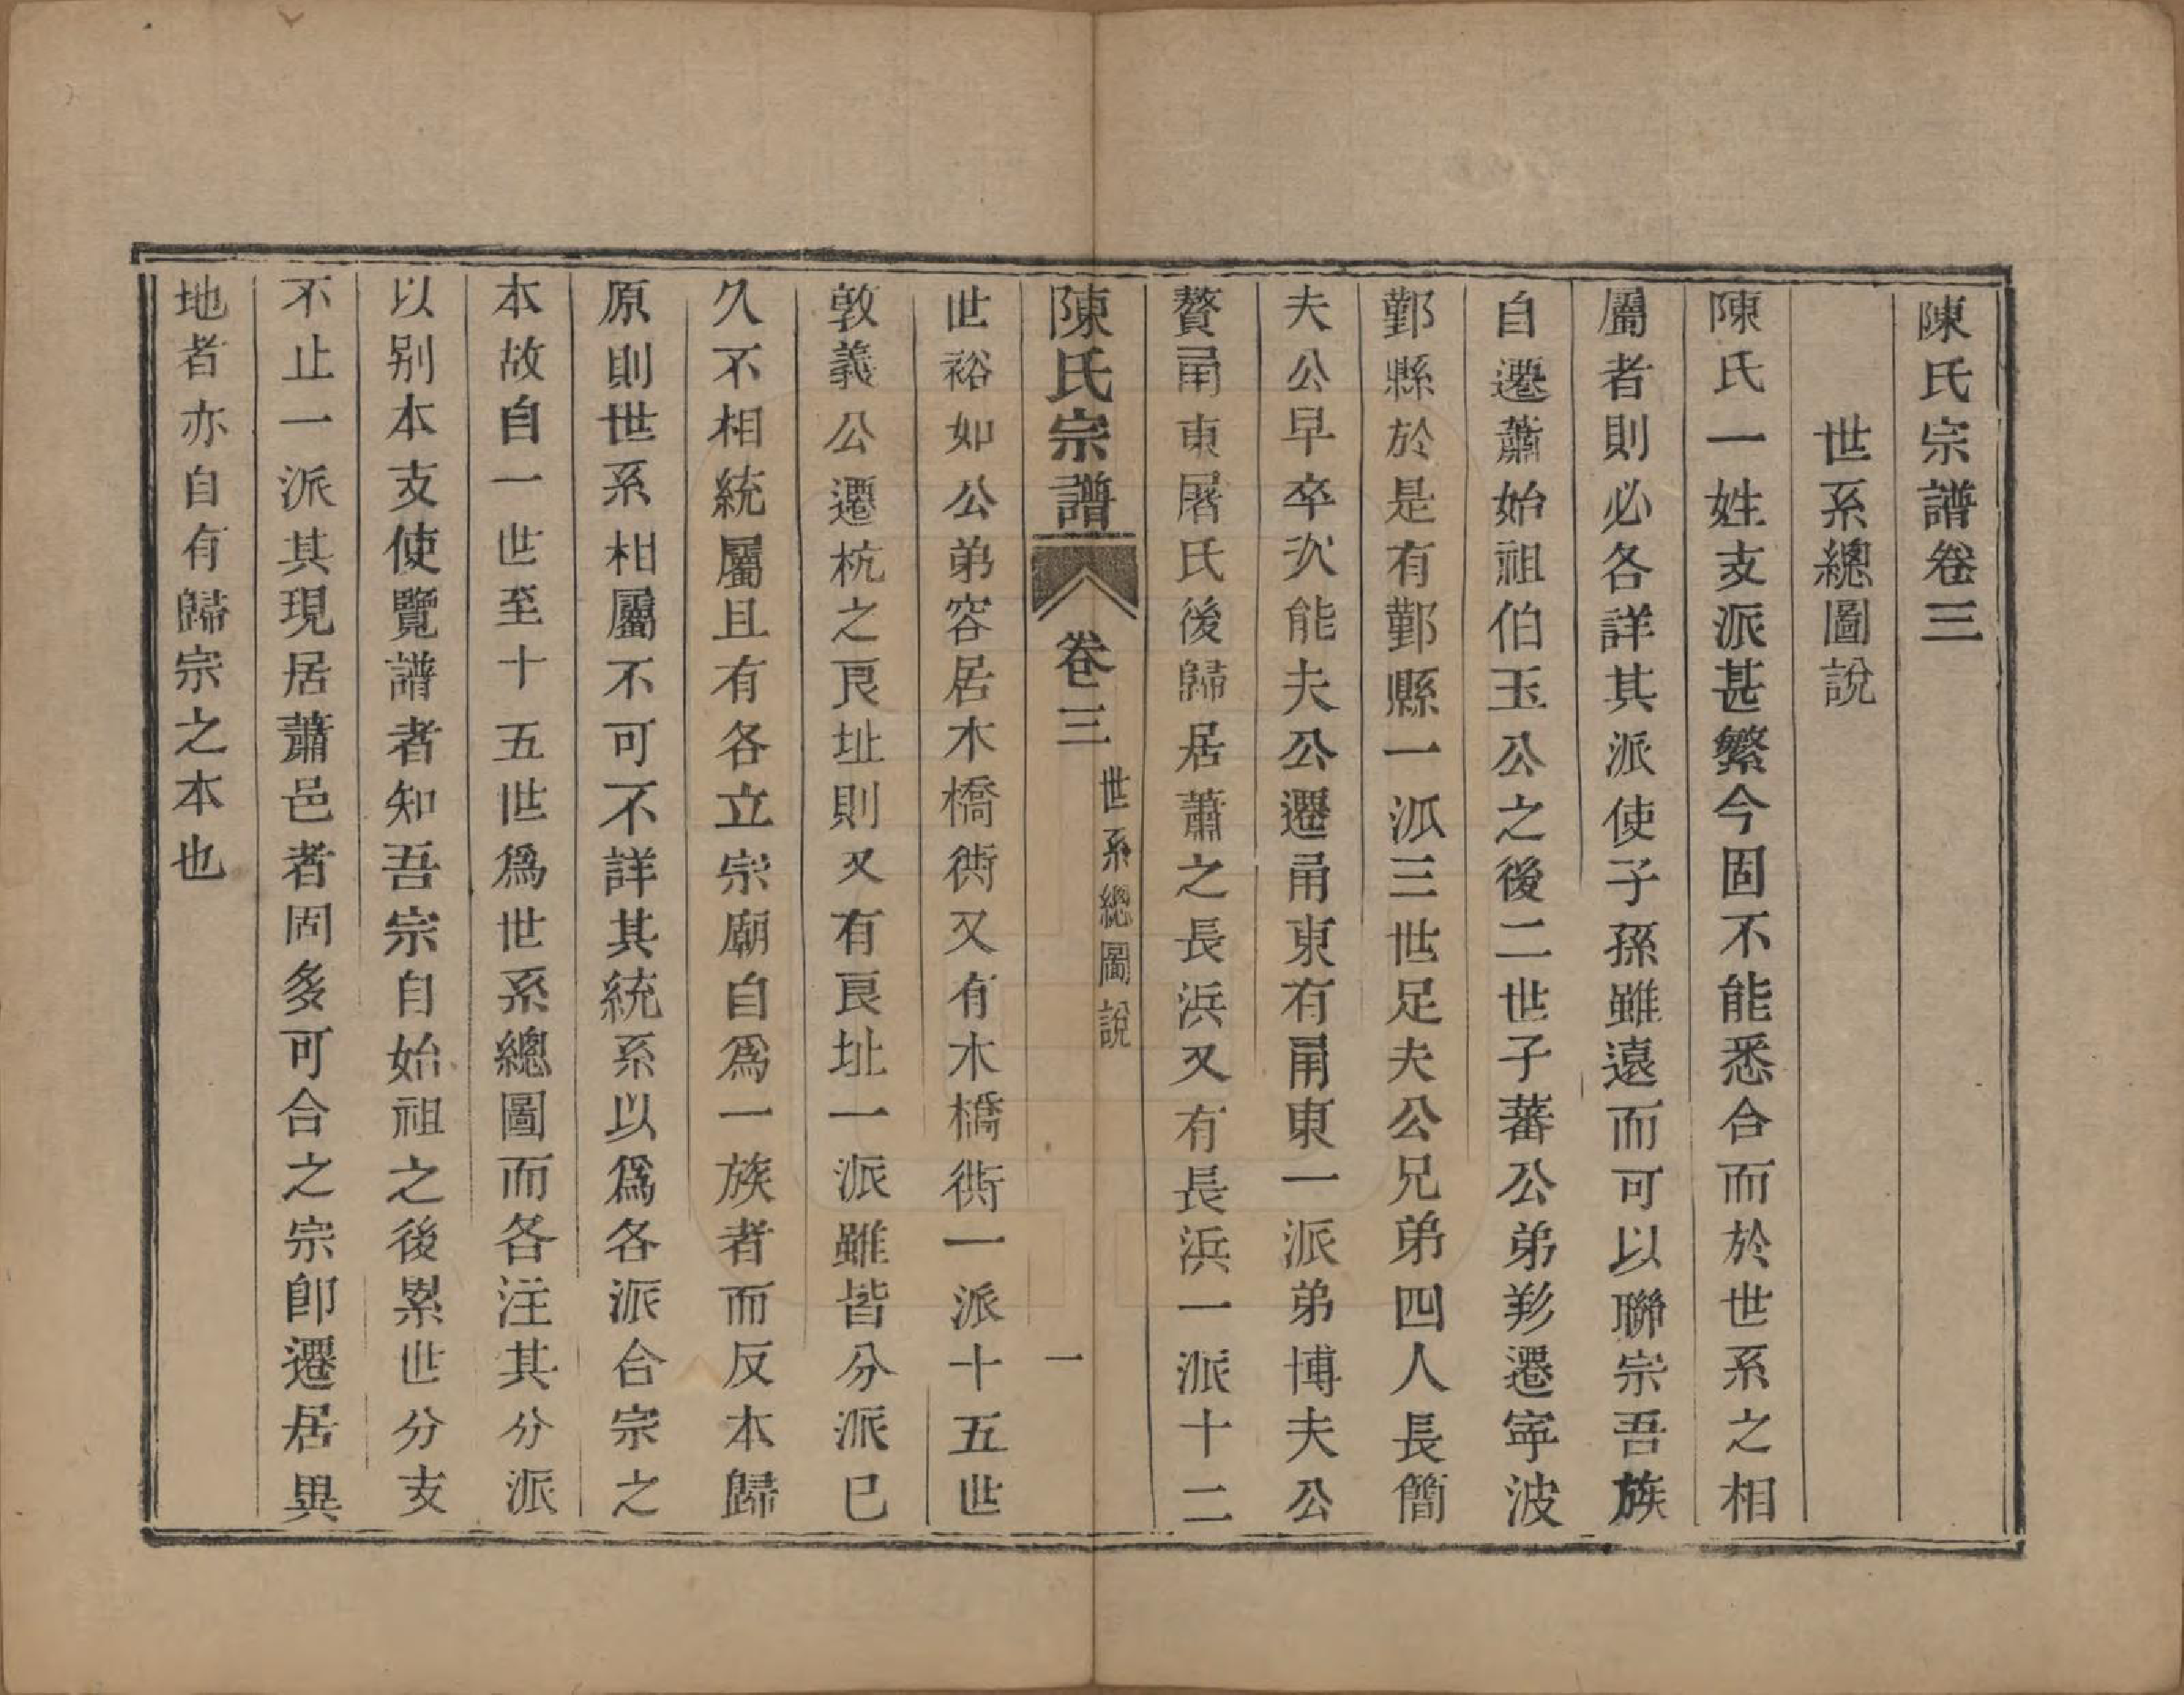 陳氏宗譜卷三
世系總圖說
陳氏一姓支派甚繁今固不能悉合而於世系之相
屬者則必各詳其派使子孫雖遠而可以聯宗吾族
自遷蕭始祖伯玉公之後二世子蕃公弟羕遷寧波
鄞縣於是有鄞縣一派三世足夫公兄弟四人長簡
夫公早卒次能夫公遷甬東有甬東一派弟博夫公
贅甬東屠氏後歸居蕭之長浜又有長浜一派十二
陳氏宗譜
卷三
世系總圖說
一
世裕如公弟容居木橋衖又有木橋衖一派十五世
敦義公遷杭之艮址則又有艮址一派雖皆分派已
久不相統屬且有各立宗廟自爲一族者而反本歸
原則世系相屬不可不詳其統系以爲各派合宗之
本故自一世至十五世爲世系總圖而各注其分派
以别本支使覽譜者知吾宗自始祖之後累世分支
不止一派其現居蕭邑者固多可合之宗卽遷居異
地者亦自有歸宗之本也